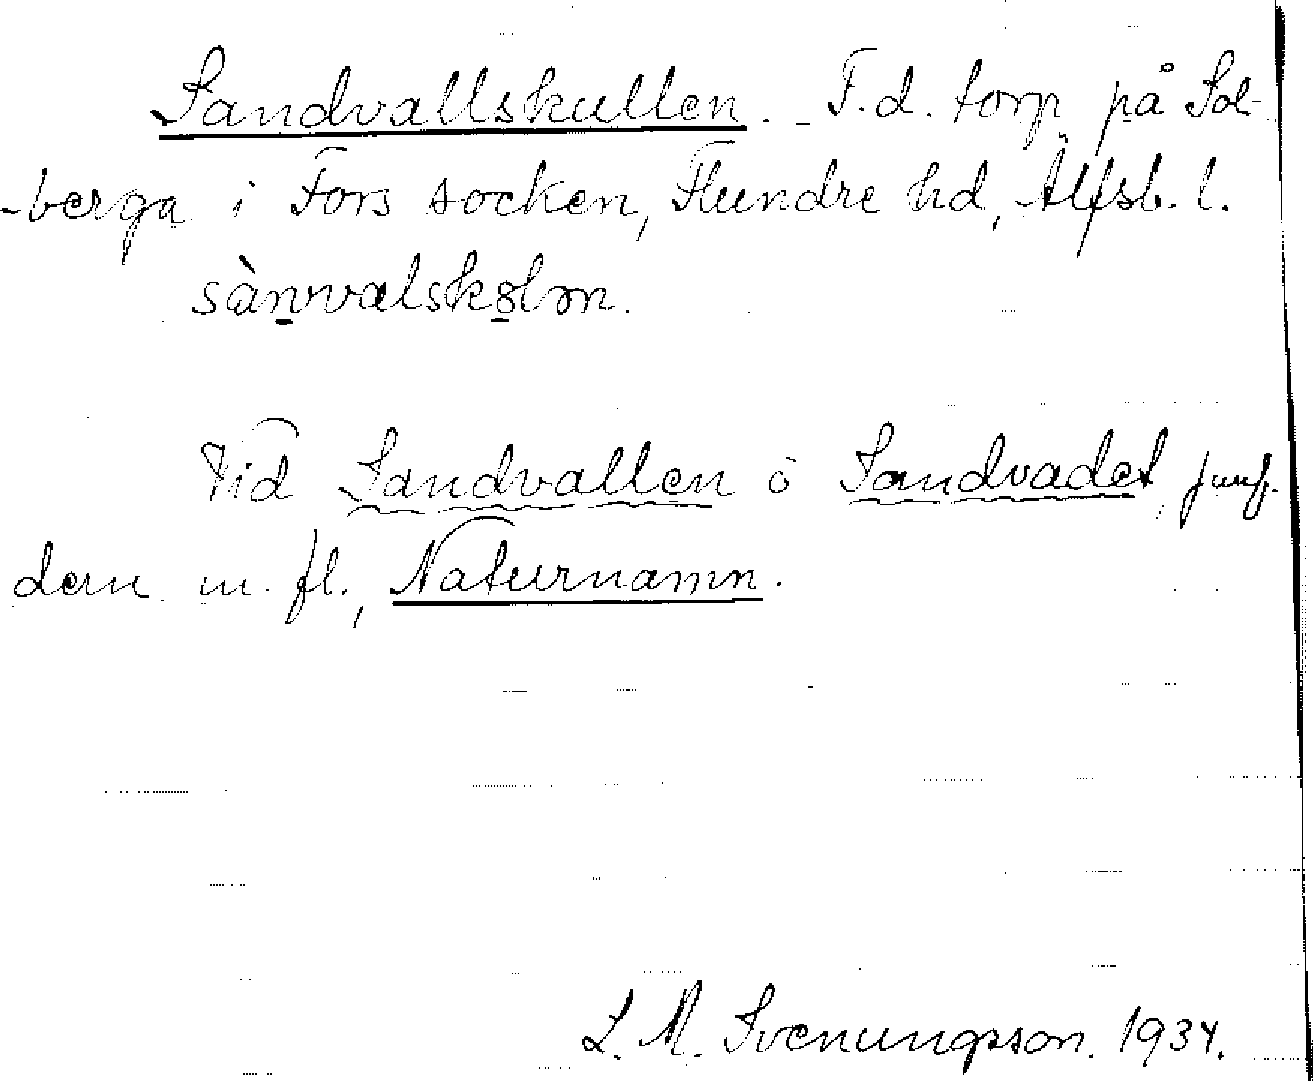 Sandvallskullen. - F.d. torp på Sol-
-berga i Fors socken, Flundre hd, Älfsb. l.
sànvalskɵlən.
Vid Sandvallen o Sandvadet, jmf.
dem m. fl., Naturnamn.
L. M. Svenungsson. 1934.